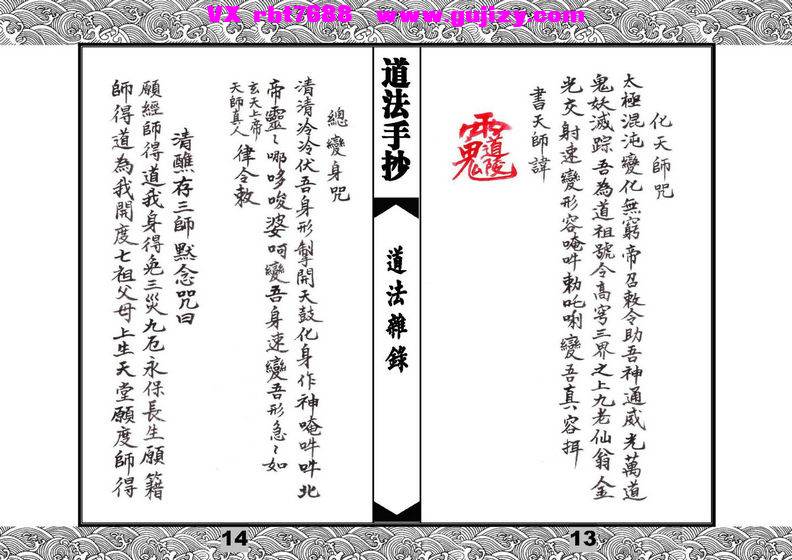 VX rbt7688 www.gujizy.com
化天師咒
太極混沌變化無窮帝召敕令助吾神通威光萬道
鬼妖滅踪吾為道祖號令高穹三界之上九老仙翁金
光交射速變形容唵吽勅吒唎變吾真容揖
書天師諱
道陵
道法手抄
道法雜錄
總變身咒
清清冷冷伏吾身形掣開天鼓化身作神唵吽吽北
帝靈〻哪哆唆婆呵變吾身速變吾形急〻如
玄天上帝
天師真人
律令敕
清醮存三師默念咒曰
願經師得道我身得免三災九厄永保長生願籍
師得道為我開度七祖父母上生天堂願度師得
14
13